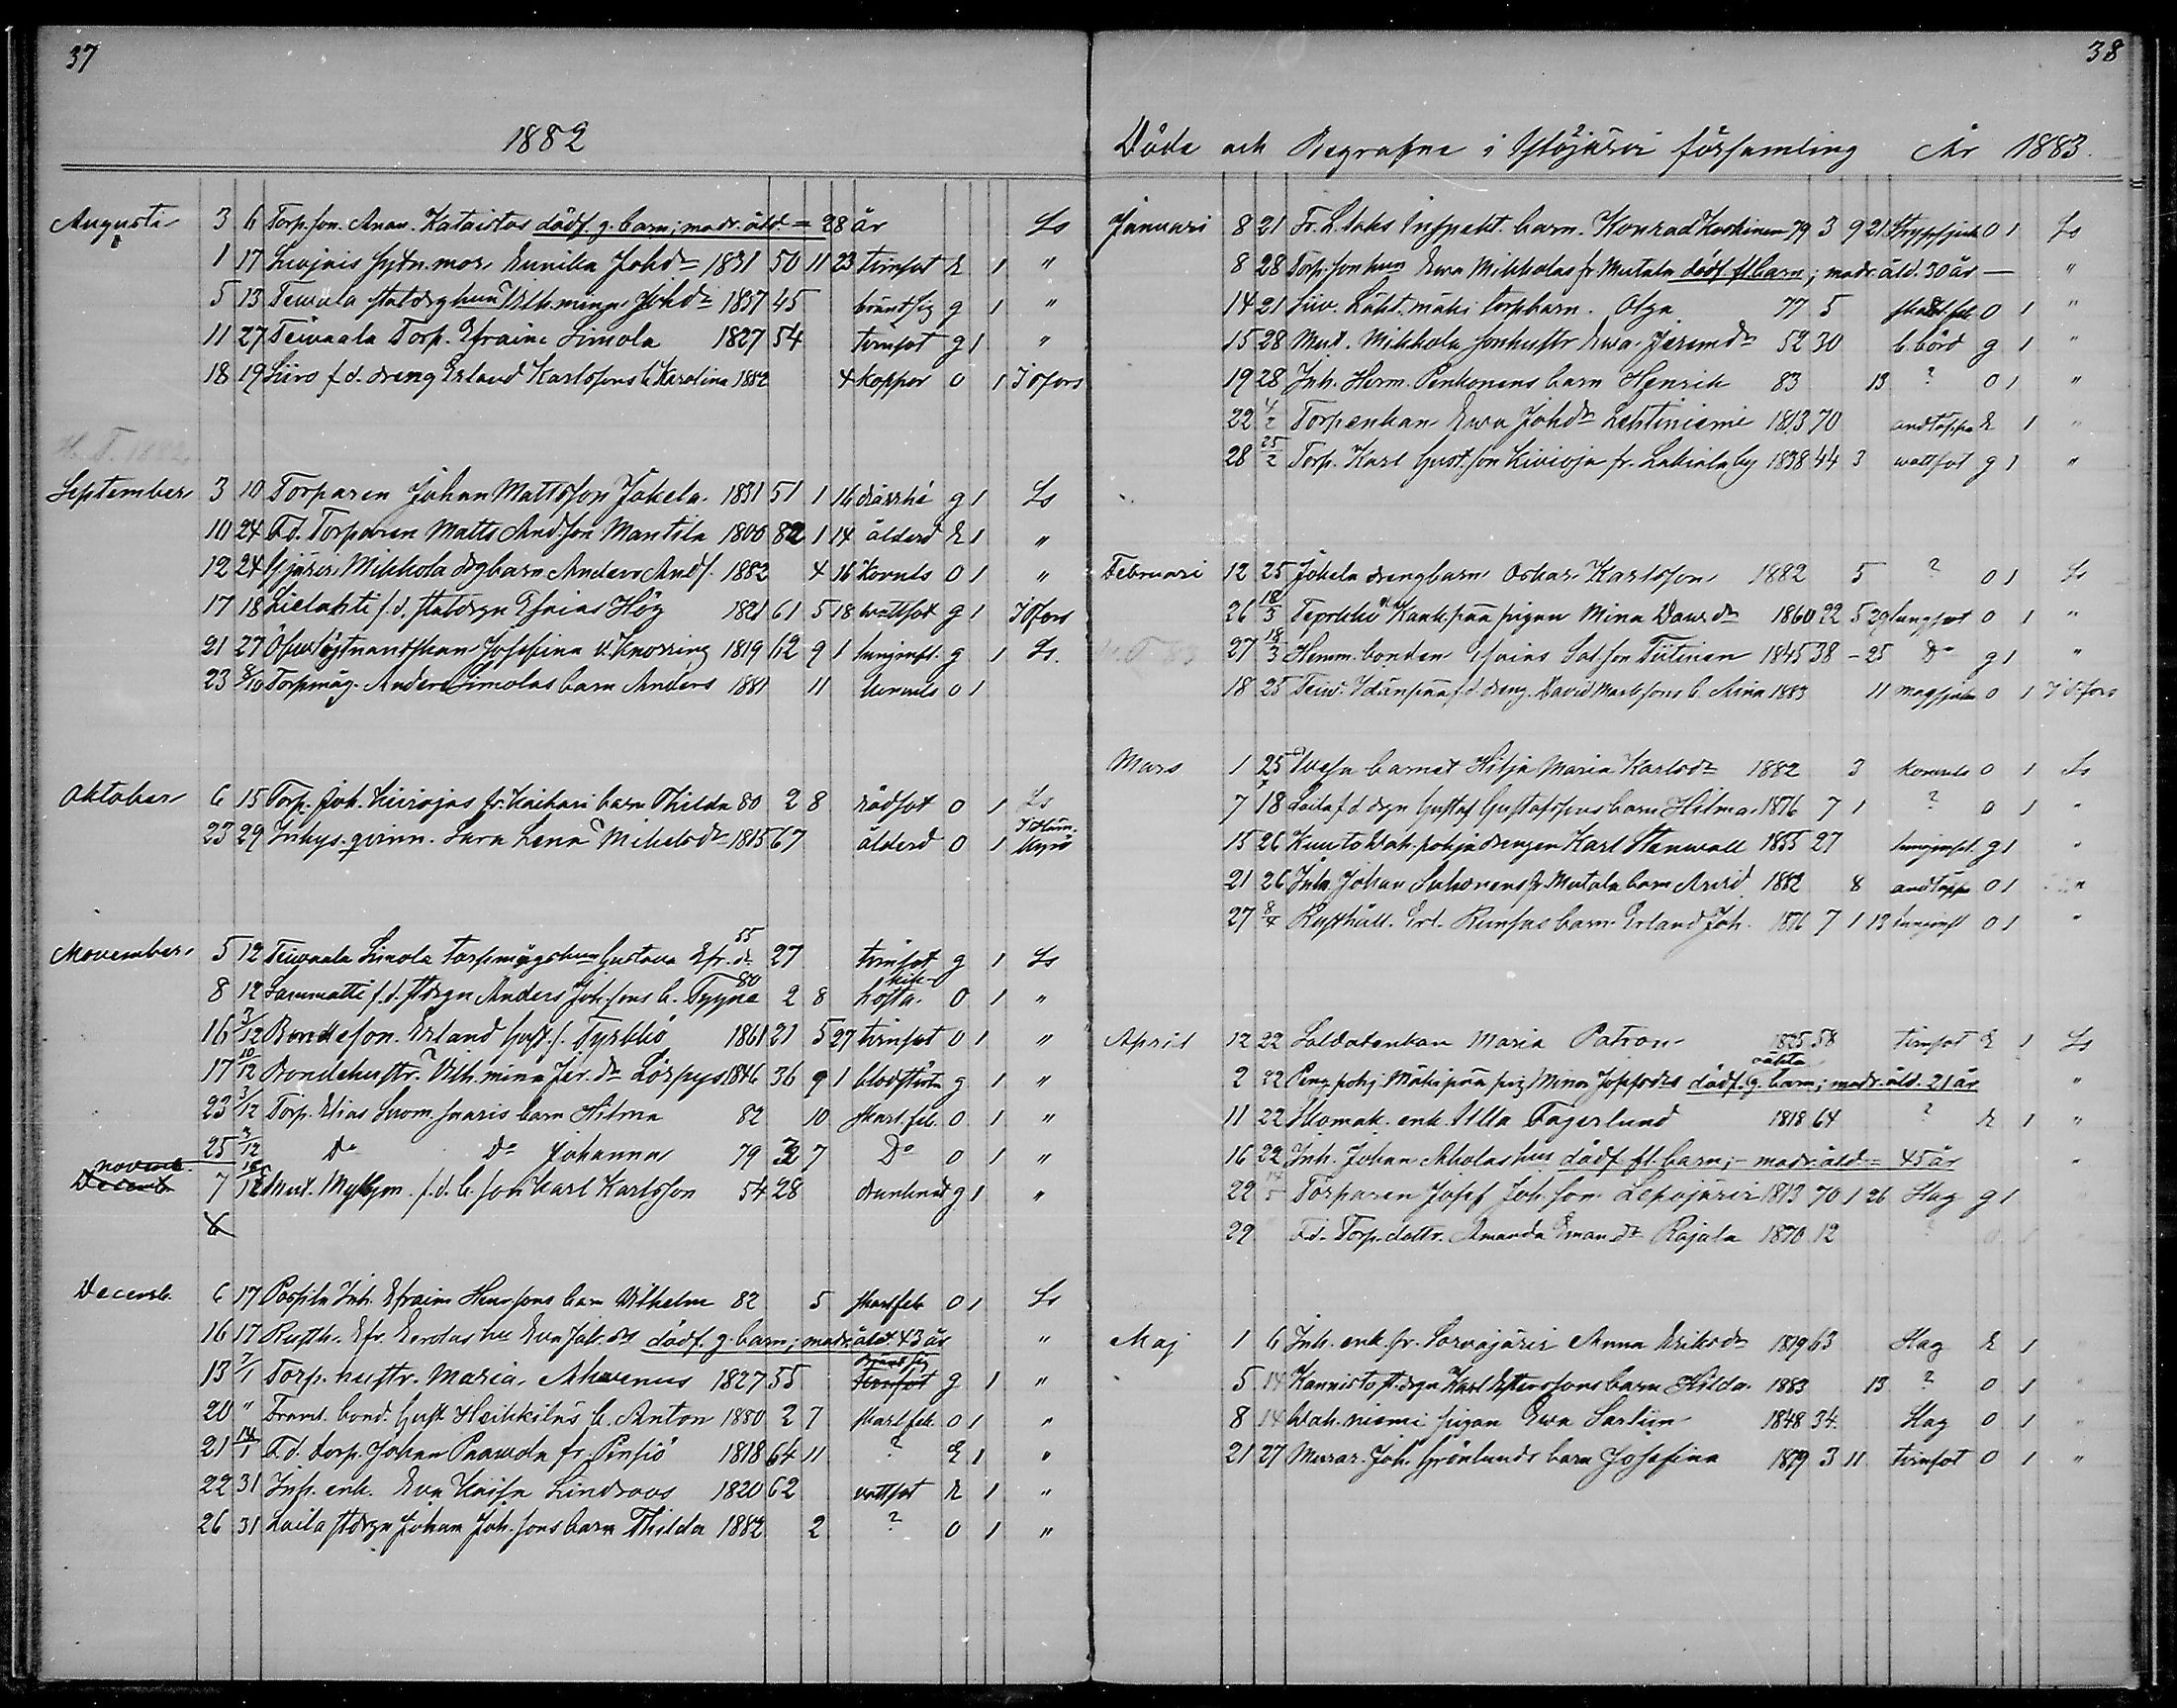 37
1882
Augusti 3 6 Torp.son. Anan. Kataistos dödf. g. barn; modr. åld. = 28 år Ls
1 17 sytn.mor. Eunika Johdr 1831 50 11 23 tvinsot E 1 "
5 13 Teivala statdrg hun Vilh.mina Johdr 1837 45 bränt sig g 1 "
11 27 Teivaala Torp. Efraim Simola 1827 54 tvinsot g 1 "
18 19 Siiro f.d. dreng Erland Karlssons b. Karolina 1882 4 koppor 0 1 T.fors
H. T. 1882.
September 3 10 Torparen Johan Mattsson Jokela 1831 51 1 16 g 1 Ls
10 24 F.d. Torparen Matts Andson Mantila 1800 82 1 14 ålderd E 1 "
12 24 Mikkola drgbarn Anders Andf. 1882 4 16 Konvuls 0 1 "
17 18 Lielahti f.d. statdrgn Esaias Hög 1821 61 5 18 wattsot g 1 T.fors
21 27 Josefina v. Knorring 1819 62 9 1 lunginfl. g 1 Ls.
23 8/10 Torpmåg. Anders Simolas barn Anders 1881 11 konvuls 0 1
Oktober 6 15 Torp. Joh. fr. Kaihari barn Thilda 80 2 8 rödsot 0 1 Ls
23 29 Inhys. qvinn. Sara Lena Mikelsdr 1815 67 ålderd 0 1 T. Ham. kyro
November 5 12 Teivaala Simola torpmågshun Gustava Efr. dr 55 27 tvinsot g 1 Ls
8 12 Lammatti f.d. stdrgn Anders Joh.sons b. Tyyne 80 2 8 kikhosta 0 1 "
16 3/12 Bondeson. Erland Gust.s. Tyrkkö 1861 21 5 27 tvinsot 0 1 "
17 10/12 Bondehustr. Vilh.mina Jer. dr 1846 36 9 1 blodstörtn g 1 "
23 3/12 Torp. Elias barn Hilma 82 10 skarl.feb. 0 1 "
25 3/12 Do Do Johanna 79 3 7 Do 0 1 "
novemb.
Decemb 7 Mut. f.d. b. son Karl Karlsson 54 28 drunknat g 1 "
Decemb. 6 17 Inh. Efraim Henr.sons barn Vilhelm 82 5 skarlfeb 0 1 Ls
16 17 Rusth. Efr. hu Eva Jak.dr dödf. g. barn; modr. åld. 43 år "
13 7/1 Torp. hustr. Maria Ahvenus 1827 55 bränt sig tvinsot g 1 "
20 " bond. Gust Heikkiläs b. Anton 1880 2 7 skarlfeb. 0 1 "
21 14/1 F.d. torp. Johan Paavola fr. Pinsiö 1818 64 11 ? E 1 "
22 31 Inh. enk. Eva Kaisa Lindroos 1820 62 vattsot E 1 "
26 31 Laila stdrgn Johan Joh.sons barn Thilda 1882 2 ? 0 1 "
38
Döde och Begrafne i Ylöjärvi församling År 1883.
Januari 8 21 Inspekt. barn. Konrad Koskinen 79 3 9 21 Strypsjuk 0 1 Ls
8 28 Torp.son hun Ewa Mikkolas fr. Mutala dödf. fl. barn; modr. åld. 30 år — "
14 21 Siiv. Laht.mäki torpbarn. Olga 77 5 skarl.feb 0 1 "
15 28 Mut. Mikkola sonhustr Ewa Jeremdr 52 30 b.börd g 1 "
19 28 Inh. Herm. Penkonens barn Henrik 83 13 ? 0 1 "
22 4/2 Torpenkan Ewa Johdr Lehtiniemi 1813 70 andtäppa E 1 "
28 25/2 Torp. Karl Gust.son Kivioja fr. Lakiala by 1838 44 3 wattsot g 1 "
Februari 12 25 Jokela drengbarn Oskar Karlsson 1882 5 ? 0 1 Ls
26 18/3 pigan Mina Davdr 1860 22 5 29 lungsot 0 1 "
V. T. 83 27 18/3 Hemm. bonden Esaias Sal.son Tiitinen 1845 38 - 25 Do g 1 "
18 25 f.d. dreng. David Mattssons b. Mina 1883 11 magsjukn 0 1 T.fors
Mars 1 25 barnet Hilja Maria Karlsdr 1882 3 konvuls 0 1 Ls
7 18 Laila f.d. drgn Gustaf Gustafssons barn Hilma 1876 7 1 ? 0 1 "
15 26 drengen Karl Stenwall 1855 27 lunginfl. g 1 "
21 26 Inh. Johan Suhonens fr. Mutala barn Arvid 1882 8 andtäppa 0 1 "
27 8/4 Rusthåll. Erl. barn Erland Joh. 1876 7 1 12 lunginfl 0 1 "
April 12 22 Soldatenkan Maria Patron 1825 58 tvinsot E 1 Ls
2 22 pig Mina Josefsdrs oäkta dödf. g. barn; modr. åld. 21 år "
11 22 Skomak. enk. Ulla Fagerlund 1818 64 ? E 1 "
16 22 Inh. Johan Aholas hus dödf fl. barn; - modr. åld. = 45 år "
22 14/5 Torparen Josef Joh.son Lepojärvi 1813 70 1 26 Slag g 1
29 F.d. Torp.dottr. Amanda Eman.dr Rajala 1870 12 ? 0 1
Maj 1 6 Inh. enk. fr. Sorvajärvi Anna Eriksdr 1819 63 Slag E 1
5 14 Kannisto st.drgn Karl barn Hilda 1883 13 ? 0 1
8 14 pigan Ewa Sarlin 1848 34 Slag 0 1
21 27 Murar. Joh. Grönlunds barn Josefina 1879 3 11 tvinsot 0 1 "